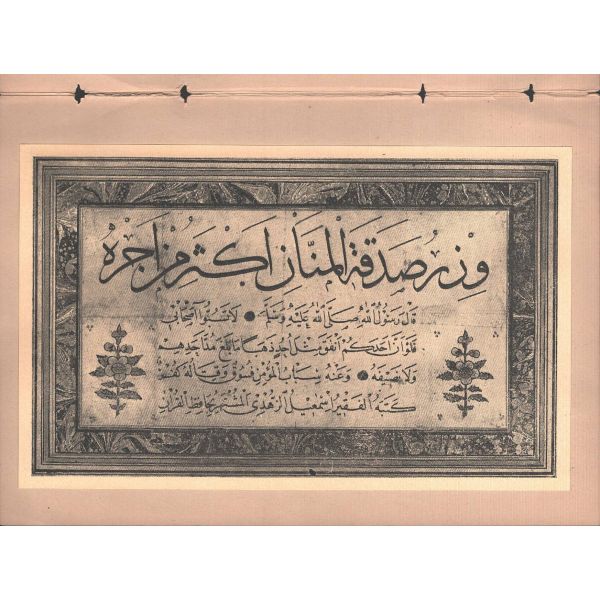 وزر صدقة المنان اكثر من اجره
قال رسول الله صلى الله عليه وسلم لا تسبوا اصحابي
فلو ان احدكم انفق مثل احد ذهبا ما بلغ مد احدهم
ولا نصيفه وعنه سباب المؤمن فسوق وقتاله كفر
كتبه الفقير اسمعيل الزهدي المشتهر بحافظ القرآن